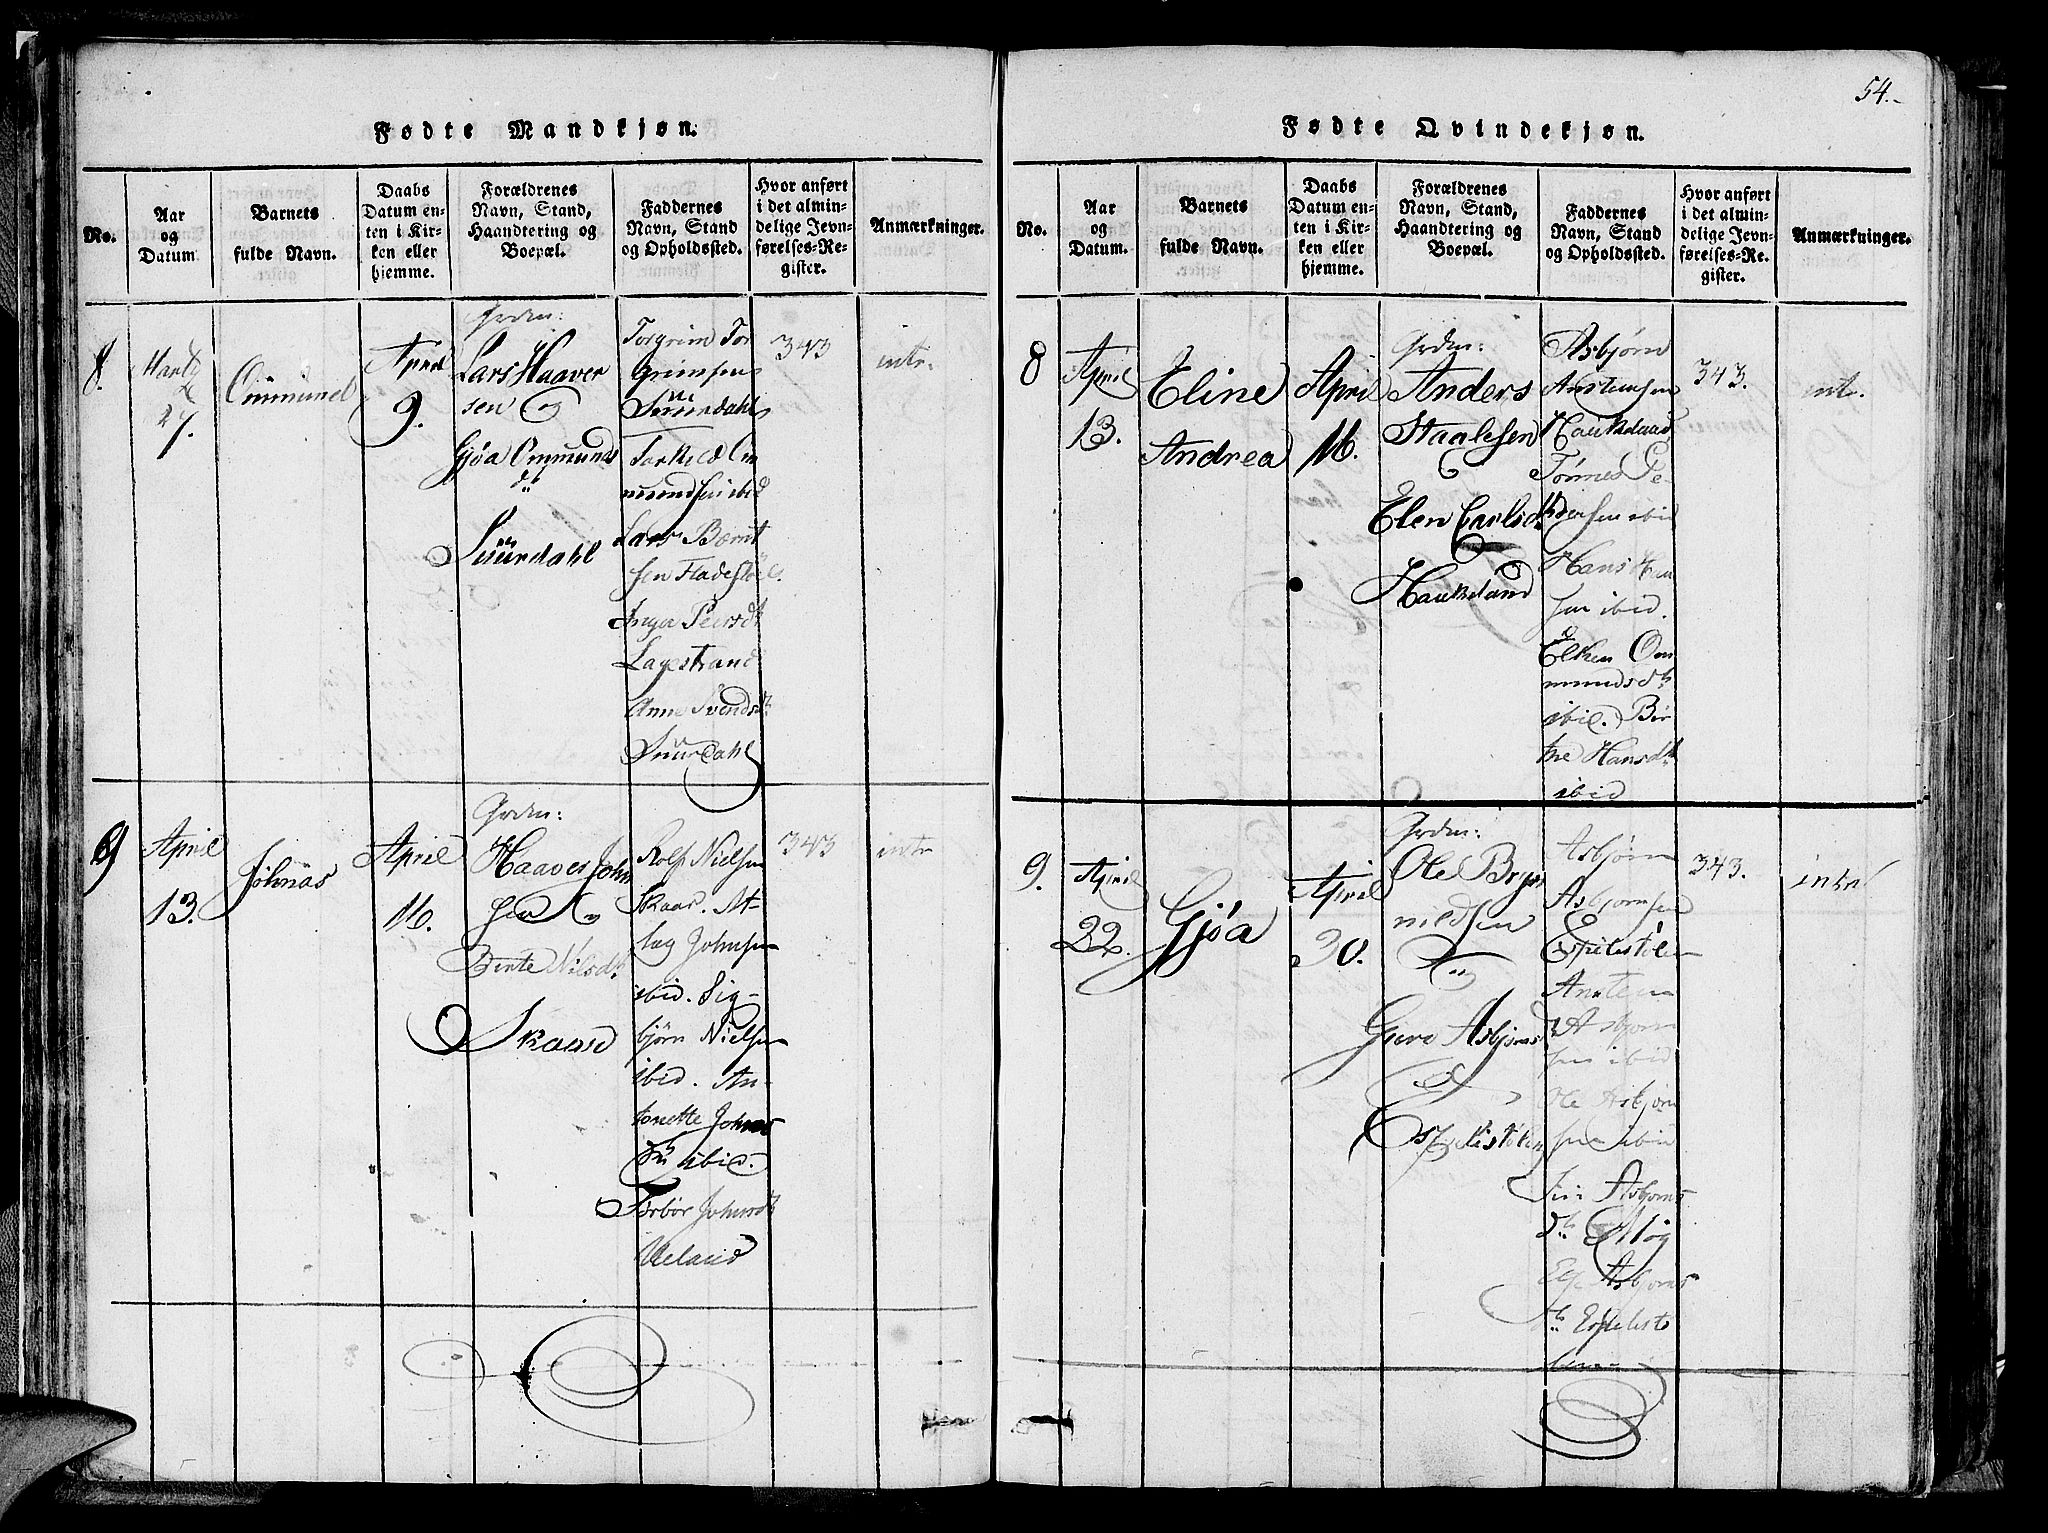 54.
Fødte Mandkjøn.
No.
Aar
og
Datum
Barnets
fulde Navn.
Daabs
Datum en-
ten i Kir-
ken eller
hjemme.
Forældrenes
Navn, Stand,
Haandtering og
Boepæl.
Faddernes
Navn, Stand
og Opholdssted.
Hvor anført
i det almin-
delige Jevn-
førelses-Re-
gister.
Anmærkninger.
8.
Marty
27.
Ommund
April
9.
Grdm:
Lars Haaver
sen og
Gjøa Ommunds
dt
Suurdahl
Torgrim Tor
Grimsen
Suurdahl
Torkild Om
mundsen ibid
Lars Bernt
sen Fladestøl
Inger Peersdt
Lagestrand
Anne Svendsdt
Suurdahl
343
intr.
9
April
13.
Johnas
April
16.
Grdm:
Haaver John
sen og
Bente Nilsdt
Skaar
Rolf Nielsen
Skaar. At-
lag Johnsen
ibid. Sig-
bjørn Nielsen
ibid. An-
tonette Johns
dt ibid.
Torbor Johnsdt
Ueland
343
intr
Fødte Qvindekjøn.
No.
Aar
og
Datum.
Barnets
fulde Navn.
Daabs
Datum en-
ten i Kir-
ken eller
hjemme.
Forældrenes
Navn, Stand,
Haandtering og
Boepæl.
Faddernes
Navn, Stand
og Opholdssted.
Hvor anført
i det almin-
delige Jevn-
førelses-Re-
gister.
Anmærkninger.
8
April
13.
Eline
Andrea
April
16.
Grdm:
Anders
Staalesen
Elen Carlsdt
Haukeland
Asbjørn
Anstensen
Haukeland
Tønnes Pe-
dersen ibid
Hans Han
sen ibid.
Elken Om
mundsdt
ibid. Bir
the Hansdt
ibid
343.
intr.
9.
April
22.
Gjøa
April
30.
Grdm:
Ole Bryn
nildsen
og
Guro Asbjørns
dt
Espelistølen
Asbjørn
Asbjørnsen
Espelistølen
Ansten
Asbjørn
sen ibid
Ole Asbjørn
sen ibid
Siri Asbjørns
dt Møg
Asbjørns
dt Espelistø
len
343.
intr